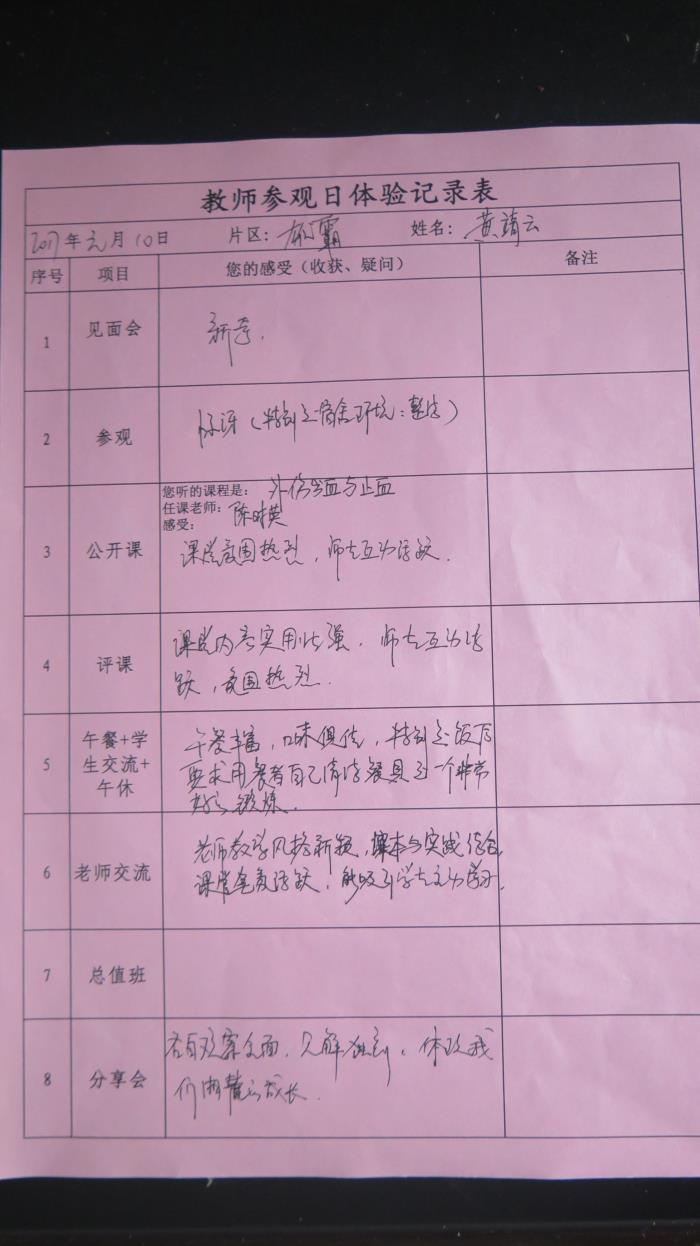 教师参观日体验记录表
2017年元月10日 片区： 霸 姓名：黄靖云
序号 项目 您的感受（收获、疑问） 备注
1 见面会 新奇.
2 参观 惊讶（特别是宿舍环境：整洁）
您听的课程是：外伤出血与止血
任课老师：陈时英
感受：
3 公开课 课堂氛围热烈，师生互动活跃.
4 评课 课堂内容实用性强. 师生互动活
跃，氛围热烈.
5 午餐+学生交流+午休 午餐丰富，口味俱佳，特别是饭后
要求用餐者自己清洁餐具是一个非常
好的锻炼.
6 老师交流 老师教学风格新颖，课本与实践结合，
课堂氛围活跃，能吸引学生主动学习.
7 总值班
8 分享会 各自观察全面，见解独到，体现我
们的成长.